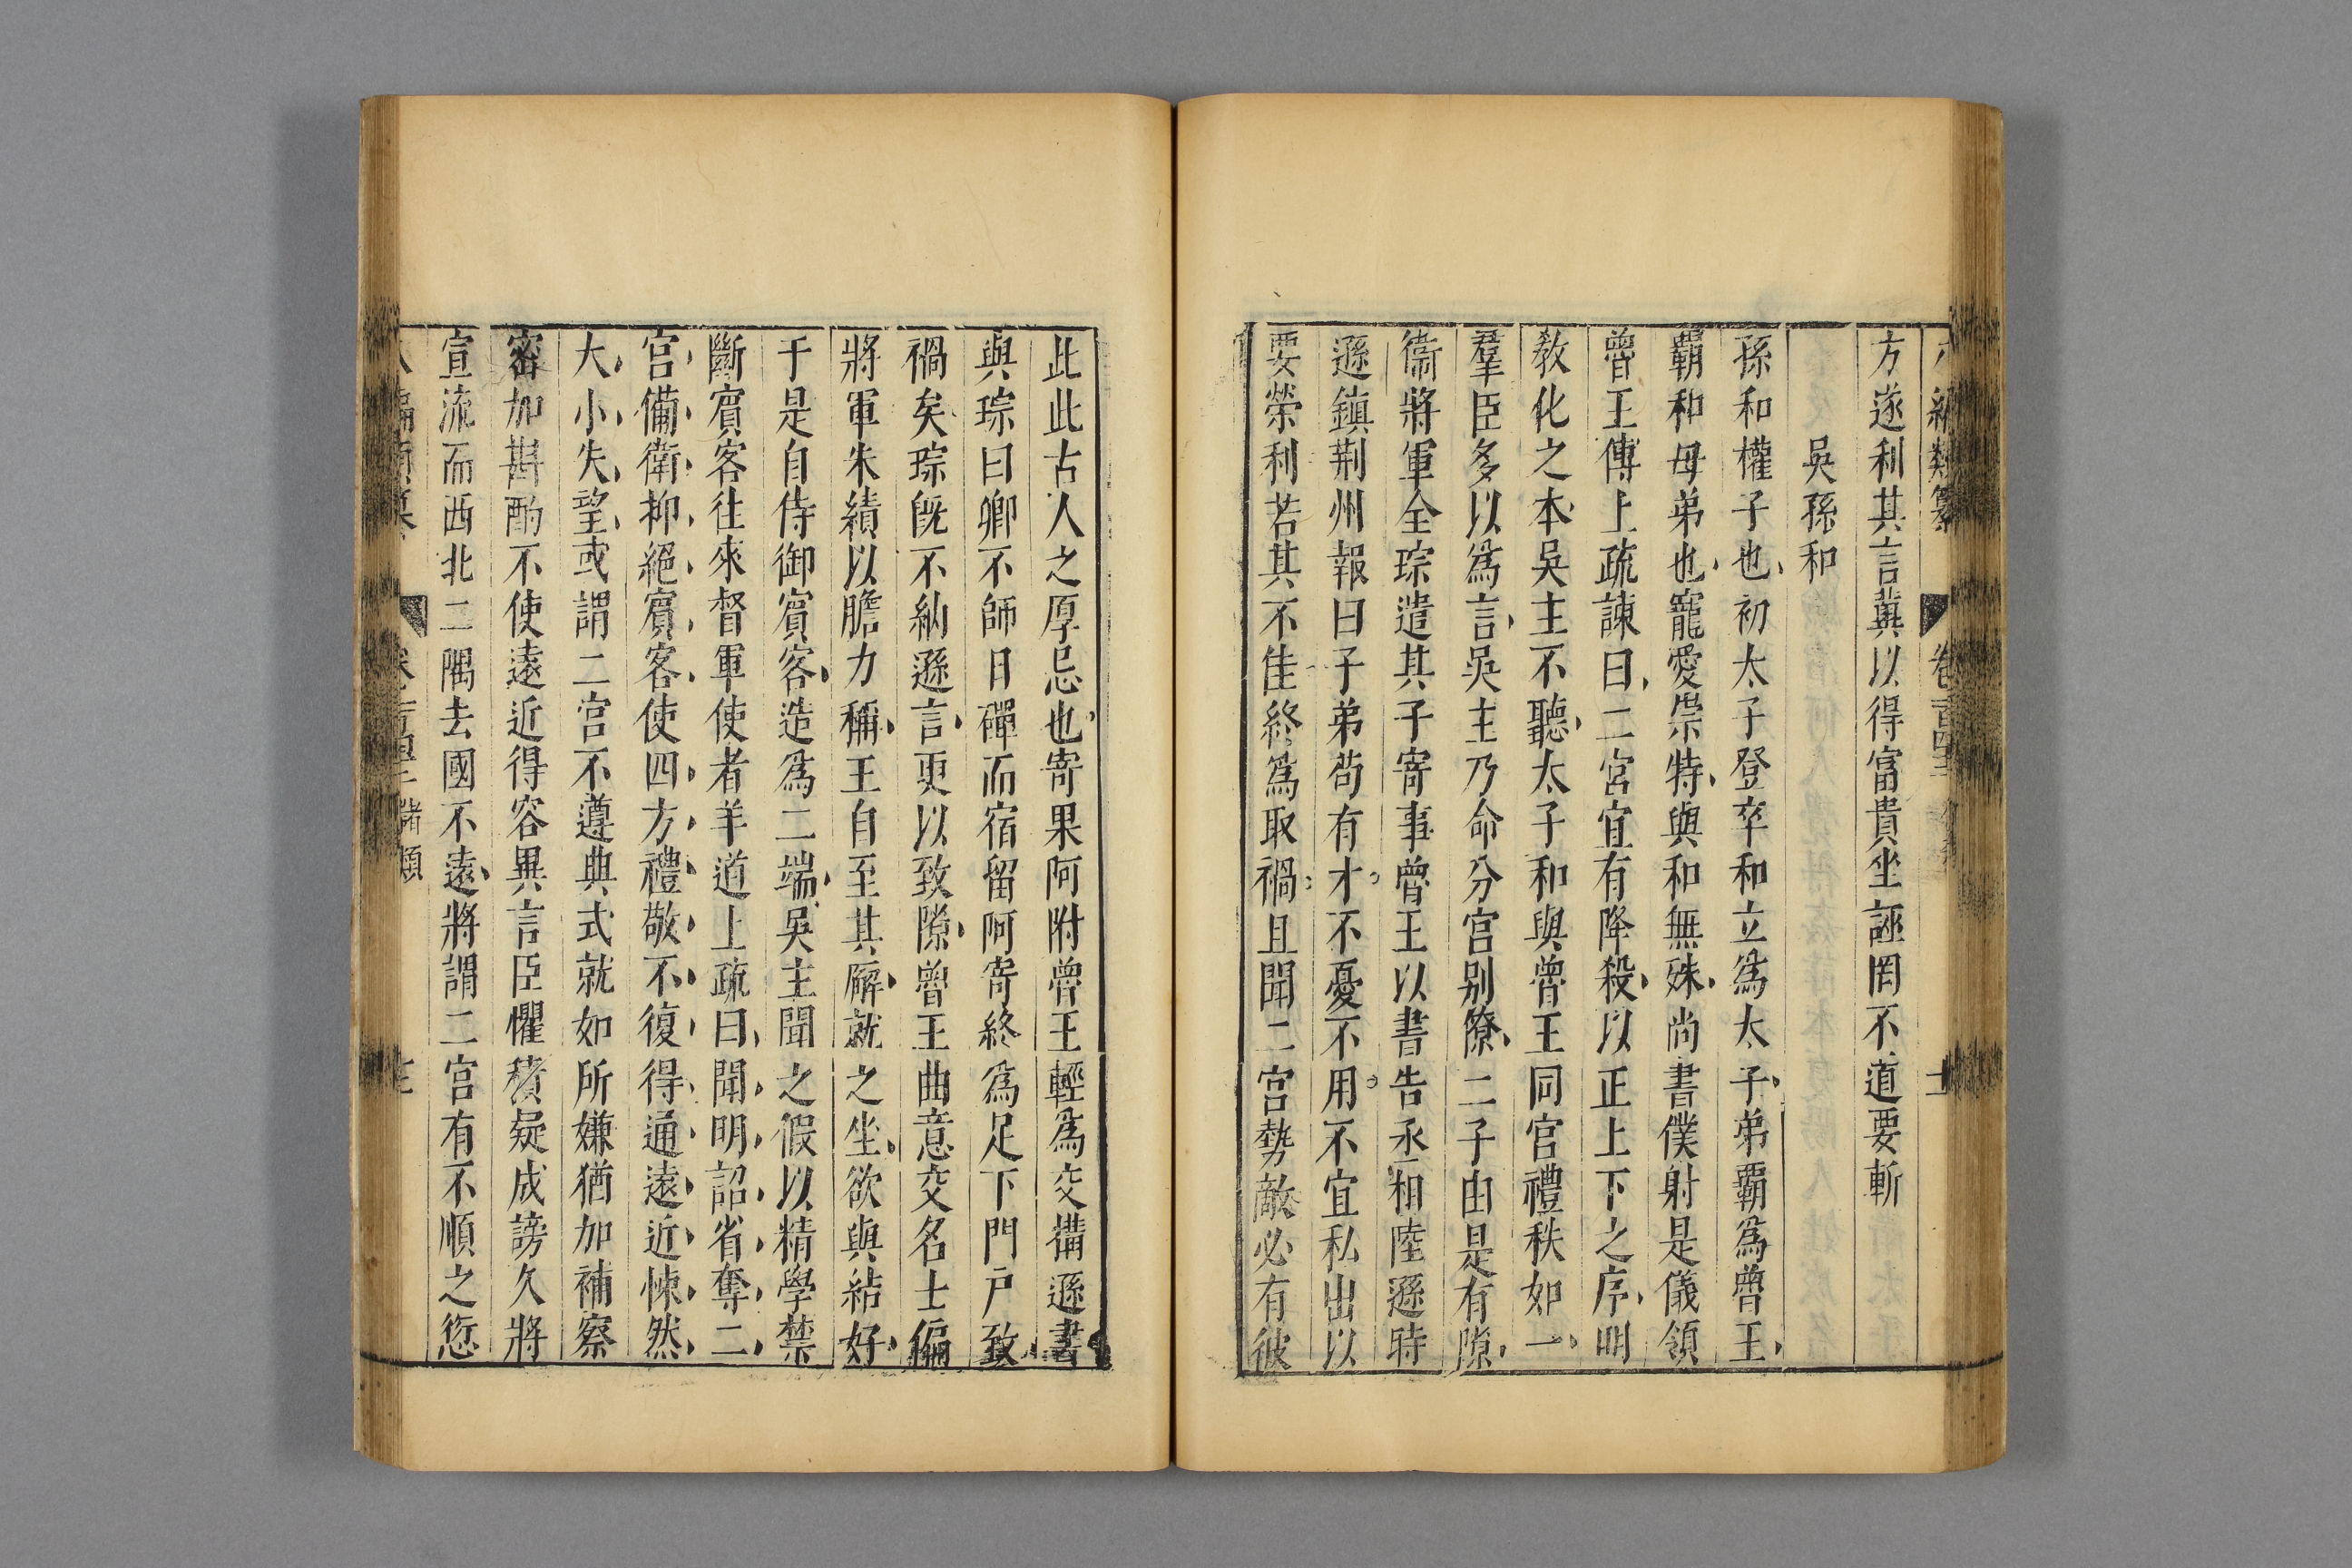 編類纂 卷一百四十 十
方遂利其言冀以得富貴坐誣罔不道要斬
吳孫和
孫和權子也初太子登卒和立爲太子弟霸爲魯王
霸和母弟也寵愛崇特與和無殊尚書僕射是儀領
魯王傅上疏諫曰二宮宜有降殺以正上下之序明
教化之本吳主不聽太子和與魯王同宮禮秩如一
羣臣多以爲言吳主乃命分宮别僚二子由是有隙
衞將軍全琮遣其子寄事魯王以書告丞相陸遜時
遜鎮荆州報曰子弟茍有才不憂不用不宜私出以
要榮利若其不佳終爲取禍且聞二宮勢敵必有彼
此此古人之厚忌也寄果阿附魯王輕爲交搆遜書
與琮曰卿不師日磾而宿留阿寄終爲足下門户致
禍矣琮旣不納遜言更以致隙魯王曲意交名士偏
將軍朱績以膽力稱王自至其廨就之坐欲與結好
于是自侍御賓客造爲二端吳主聞之假以精學禁
斷賓客往來督軍使者羊道上疏曰聞明詔省奪二
宮備衛抑絕賓客使四方禮敬不復得通遠近悚然
大小失望或謂二宮不遵典式就如所嫌猶加補察
密加斟酌不使遠近得容異言臣懼積疑成謗久將
宣流而西北二隅去國不遠將謂二宮有不順之愆
八編類纂 諸類